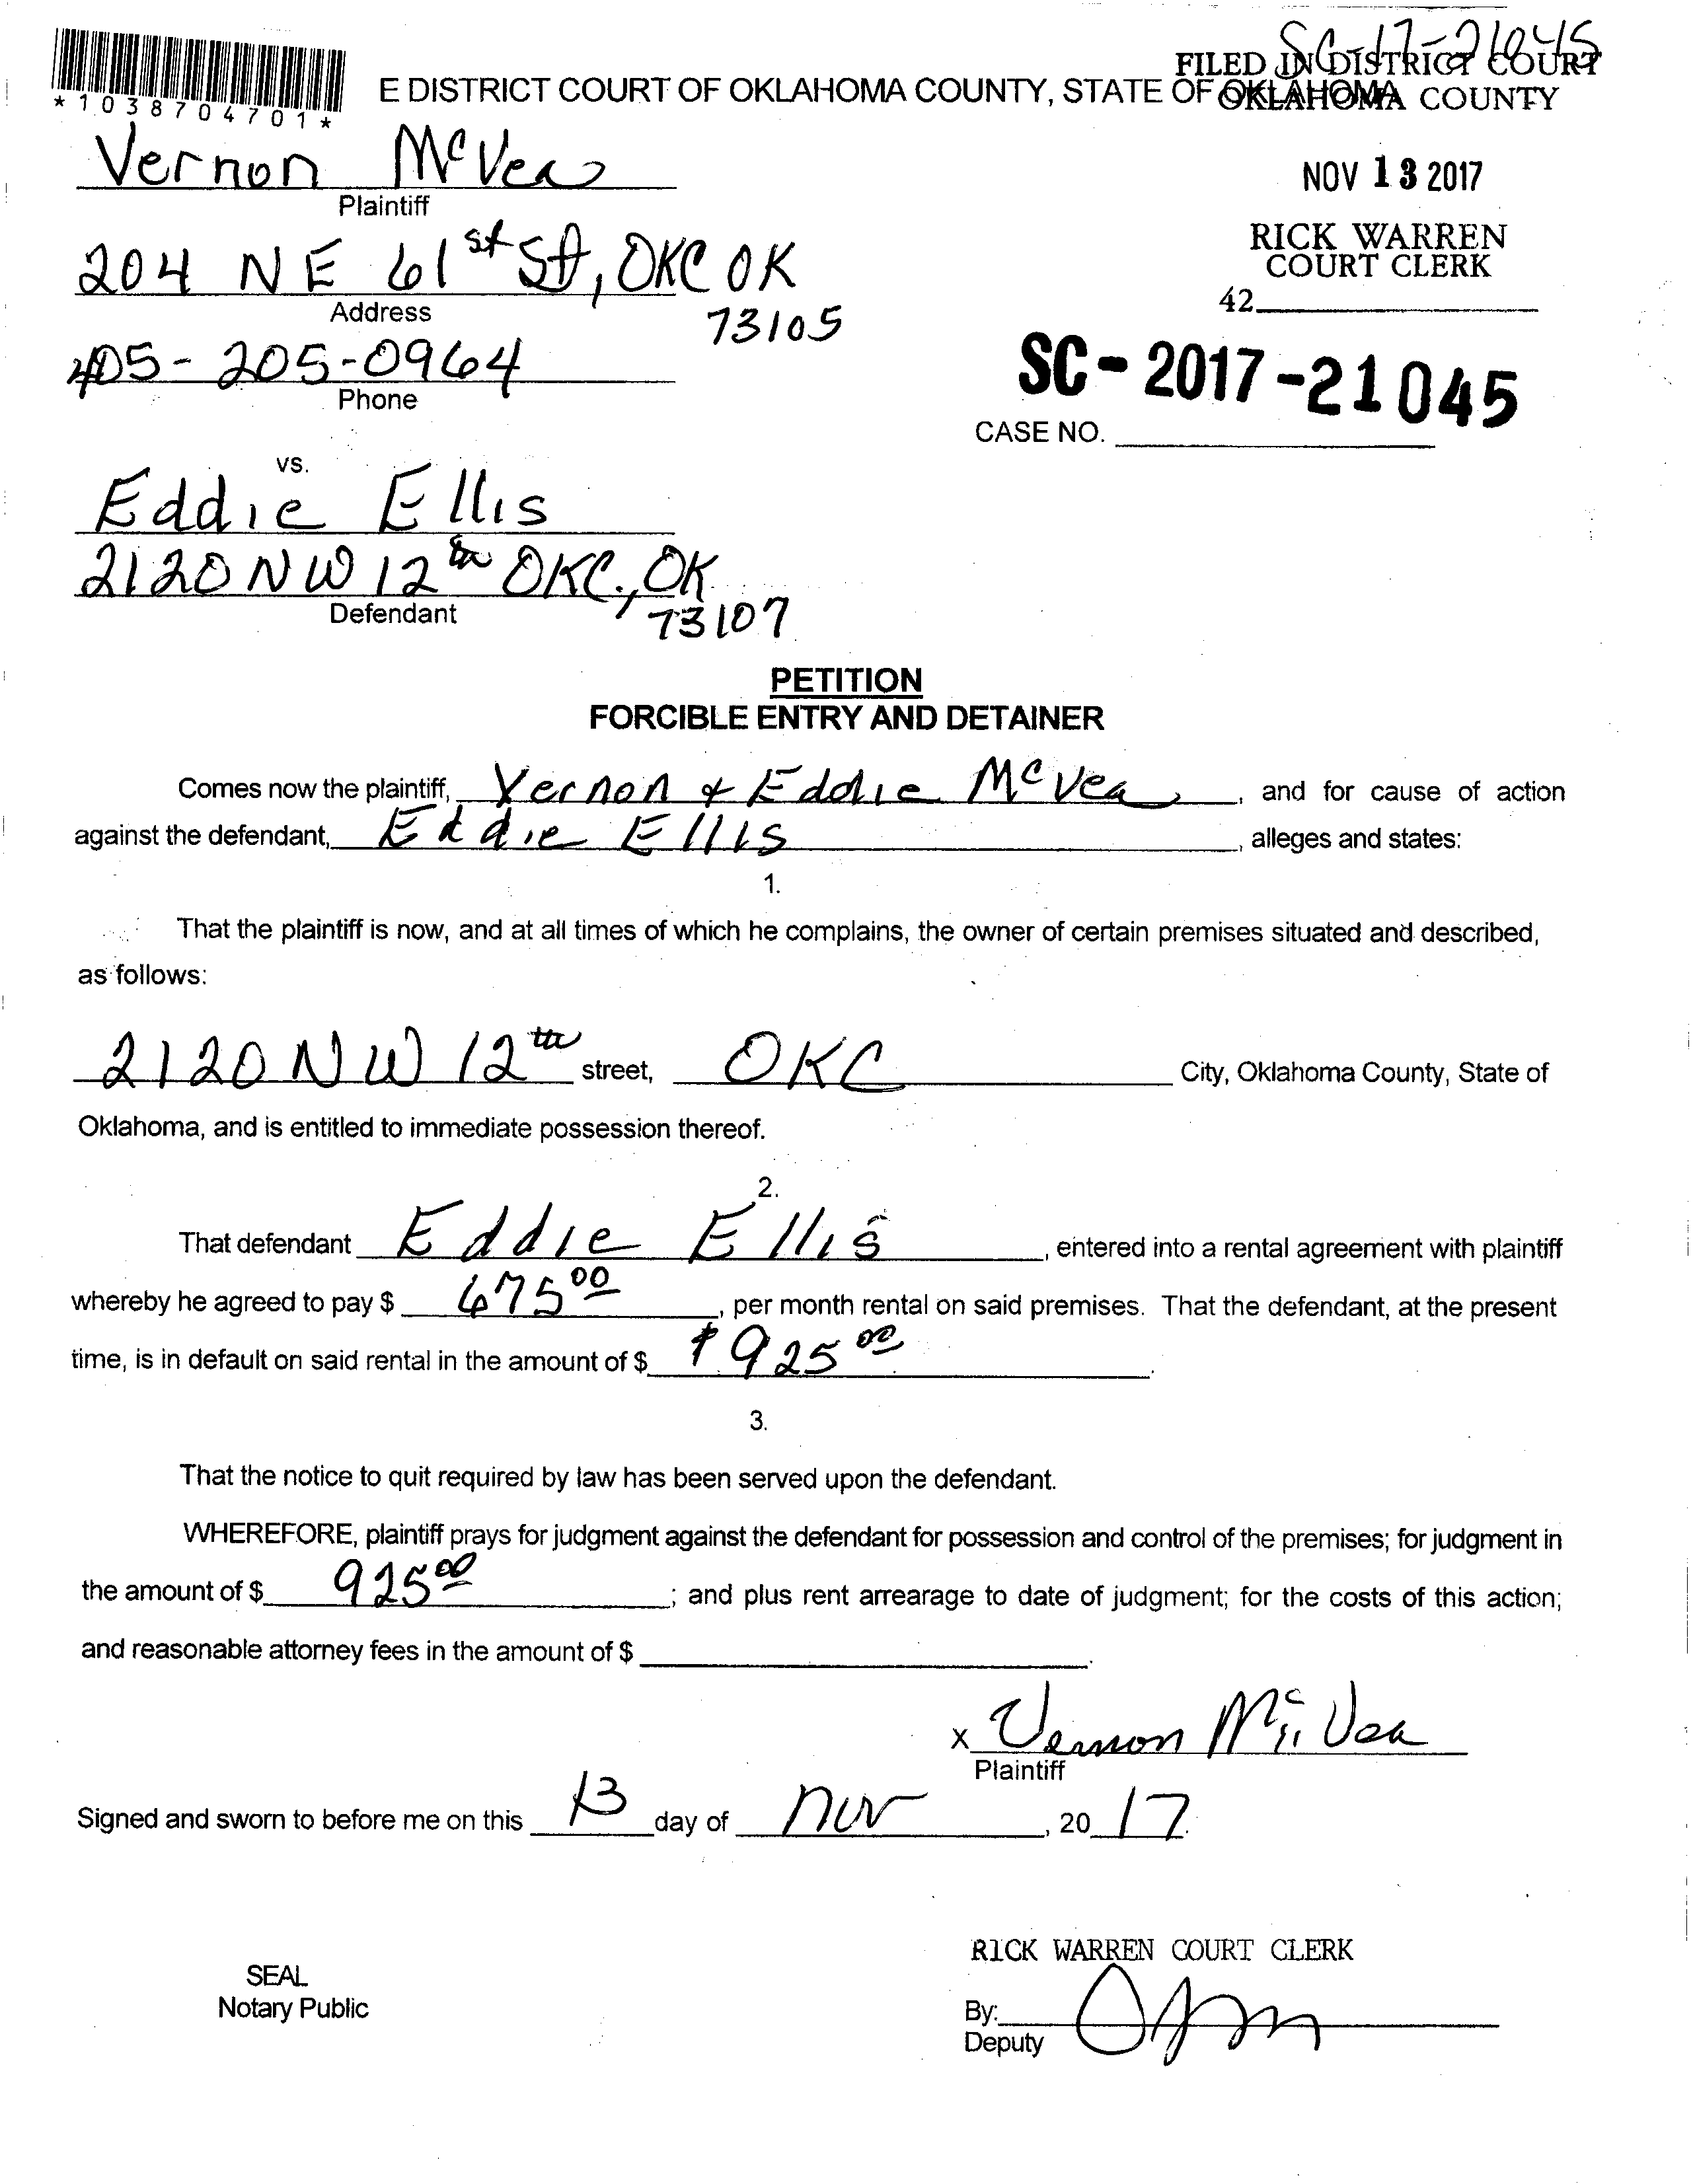 SC-17-21045
FILED IN DISTRICT COURT
E DISTRICT COURT OF OKLAHOMA COUNTY, STATE OF OKLAHOMA COUNTY
*1038704701*
Vernon McVea
Plaintiff
NOV 13 2017
RICK WARREN
COURT CLERK
204 NE 61st St, OKC OK
Address
73105
42
405-205-0964
Phone
SC-2017-21045
CASE NO.
vs.
Eddie Ellis
2120 NW 12th OKC, OK
Defendant
73107
PETITION
FORCIBLE ENTRY AND DETAINER
Comes now the plaintiff, Vernon & Eddie McVea, and for cause of action
against the defendant, Eddie Ellis, alleges and states:
1.
That the plaintiff is now, and at all times of which he complains, the owner of certain premises situated and described,
as follows:
2120 NW 12th street, OKC City, Oklahoma County, State of
Oklahoma, and is entitled to immediate possession thereof.
2.
That defendant Eddie Ellis, entered into a rental agreement with plaintiff
whereby he agreed to pay $ 675 00, per month rental on said premises. That the defendant, at the present
time, is in default on said rental in the amount of $ $925 00.
3.
That the notice to quit required by law has been served upon the defendant.
WHEREFORE, plaintiff prays for judgment against the defendant for possession and control of the premises; for judgment in
the amount of $ 925 00; and plus rent arrearage to date of judgment; for the costs of this action;
and reasonable attorney fees in the amount of $.
x Vernon McVea
Plaintiff
Signed and sworn to before me on this 13 day of Nov, 20 17.
RICK WARREN COURT CLERK
SEAL
Notary Public
By:
Deputy